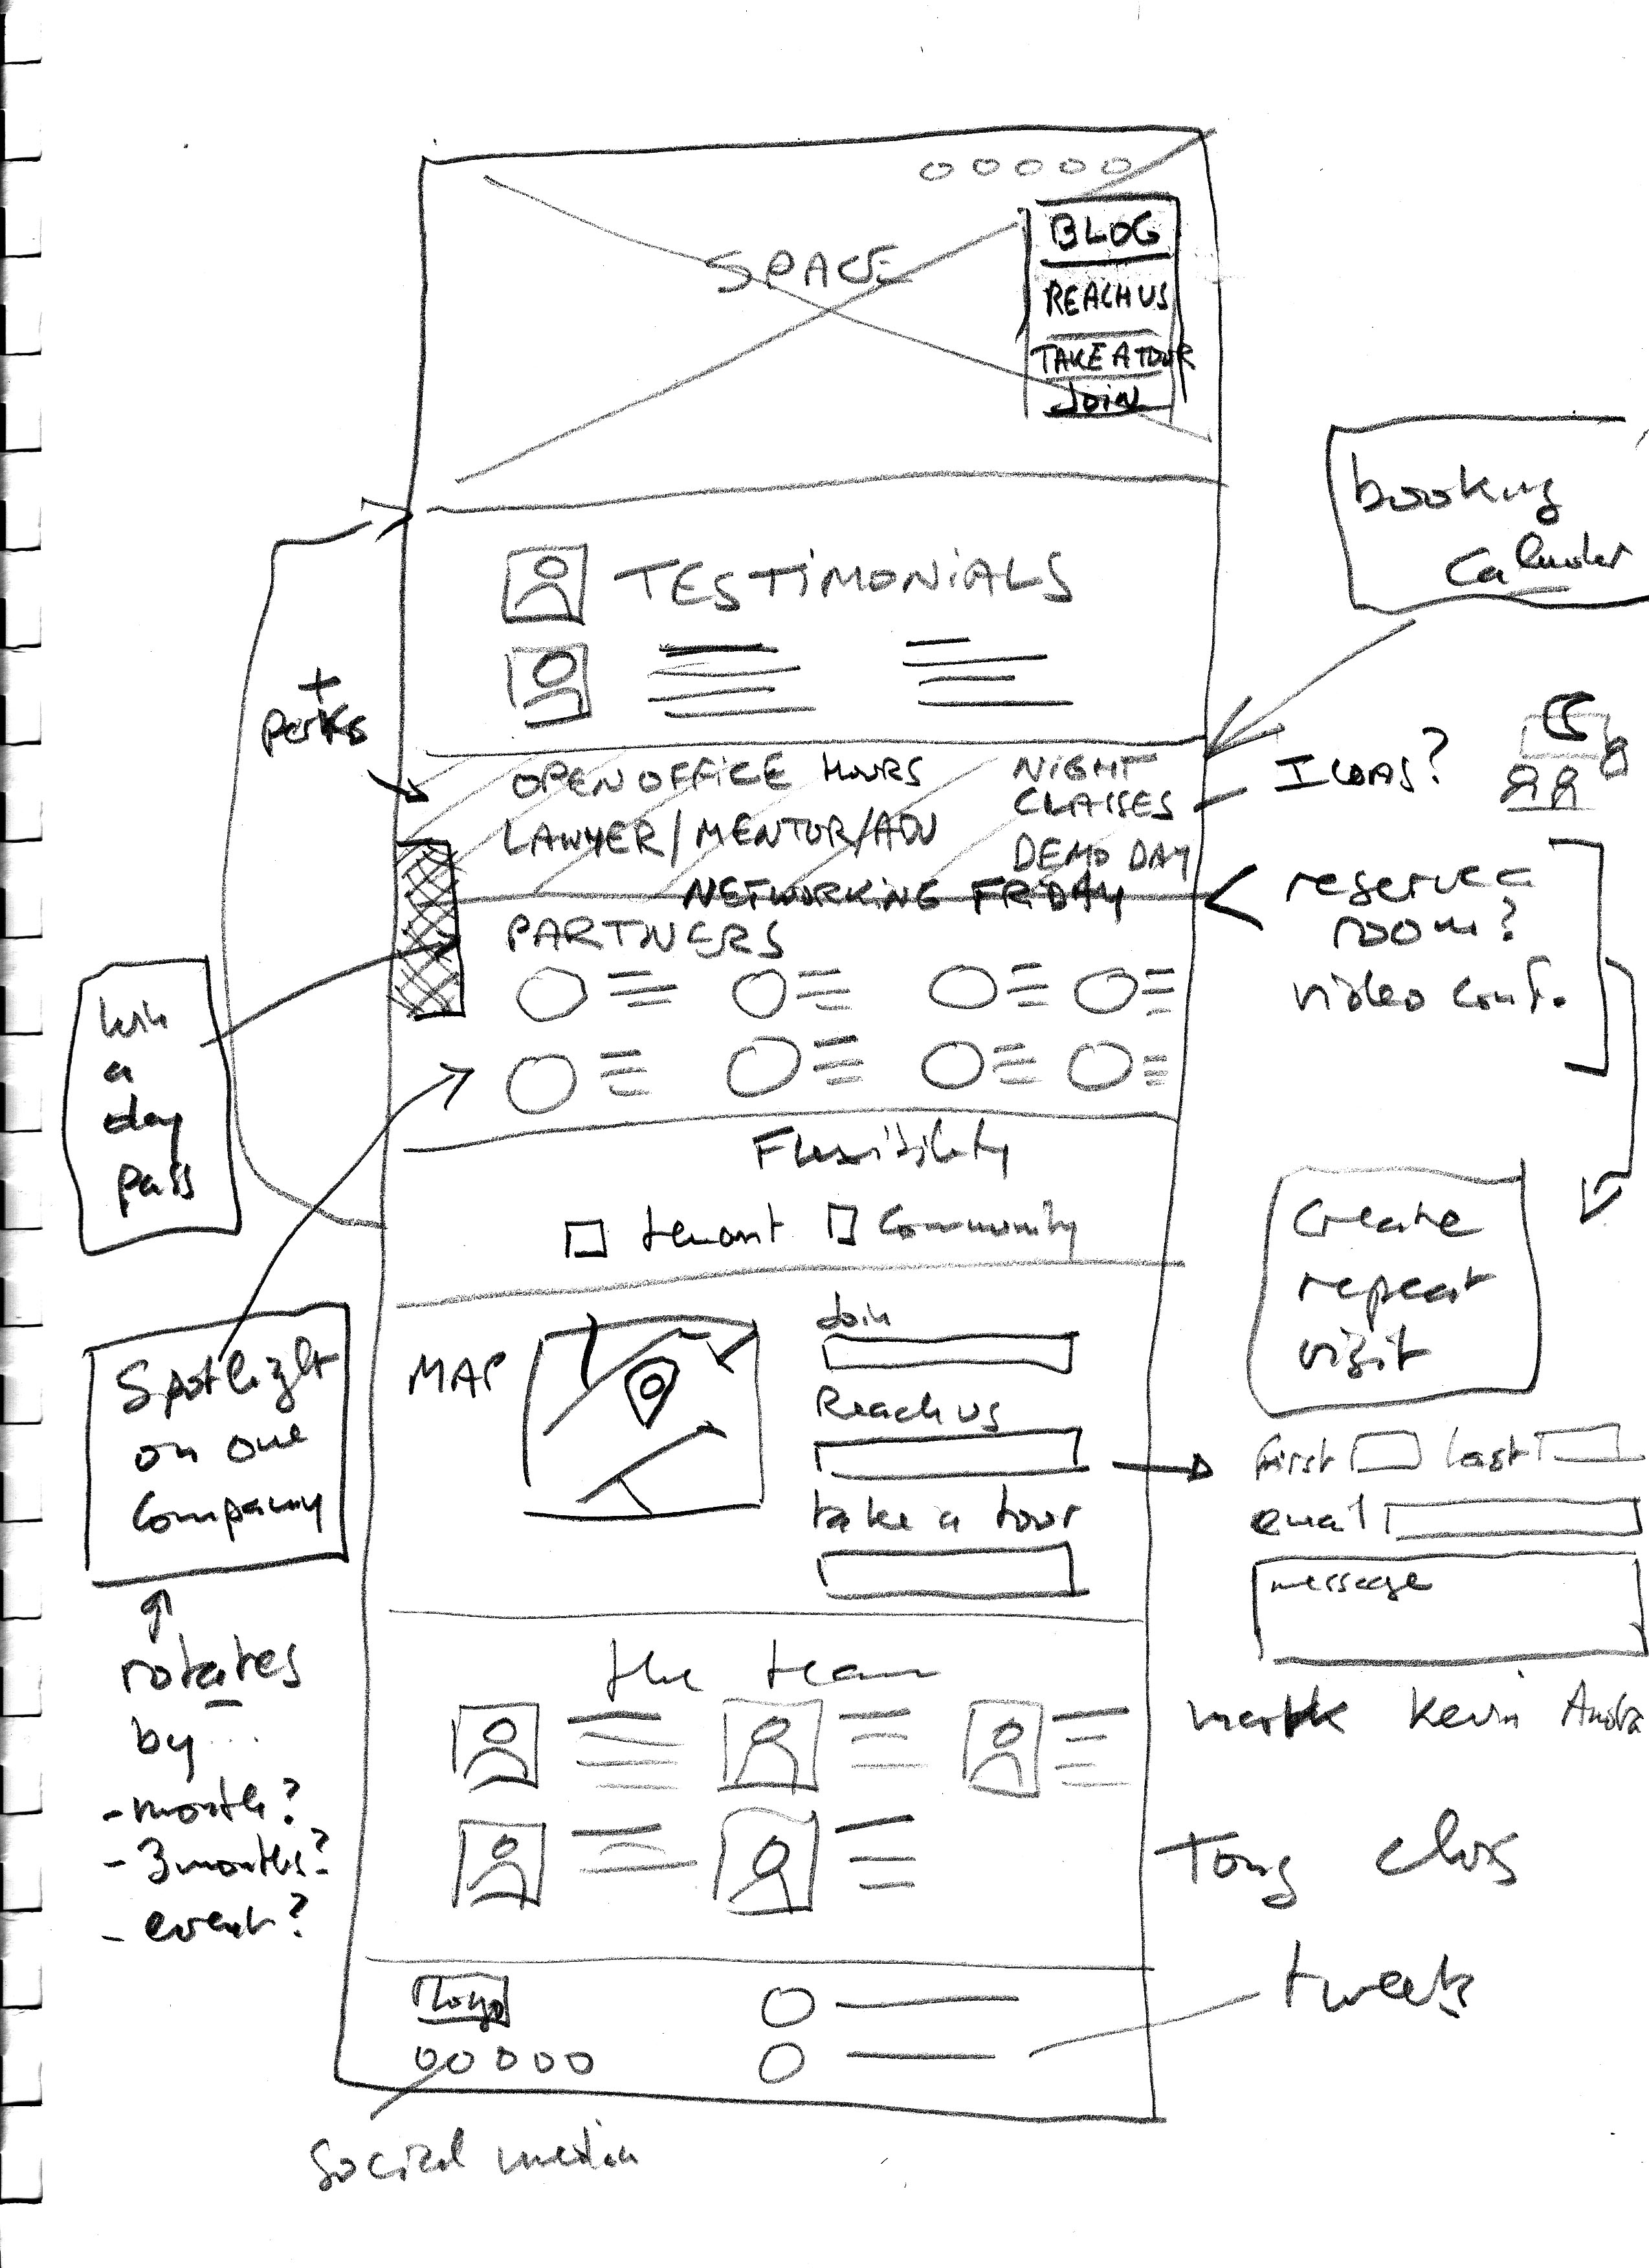 SPACE
BLOG
REACH US
TAKE A TOUR
JOIN
booking
Calender
TESTIMONIALS
+
perks
OPEN OFFICE HOURS
NIGHT
CLASSES
LAWYER/MENTOR/ADV
DEMO DAY
NETWORKING FRIDAY
reserve a
room?
video conf.
PARTNERS
win
a
day
pass
Flexibility
tenant
Community
Create
repeat
visit
Spotlight
on one
Company
MAP
Join
Reach us
take a tour
first
last
email
message
rotates
by...
- month?
- 3 months?
- event?
the team
mark Kevin
Tony chris
Logo
tweets
Social media